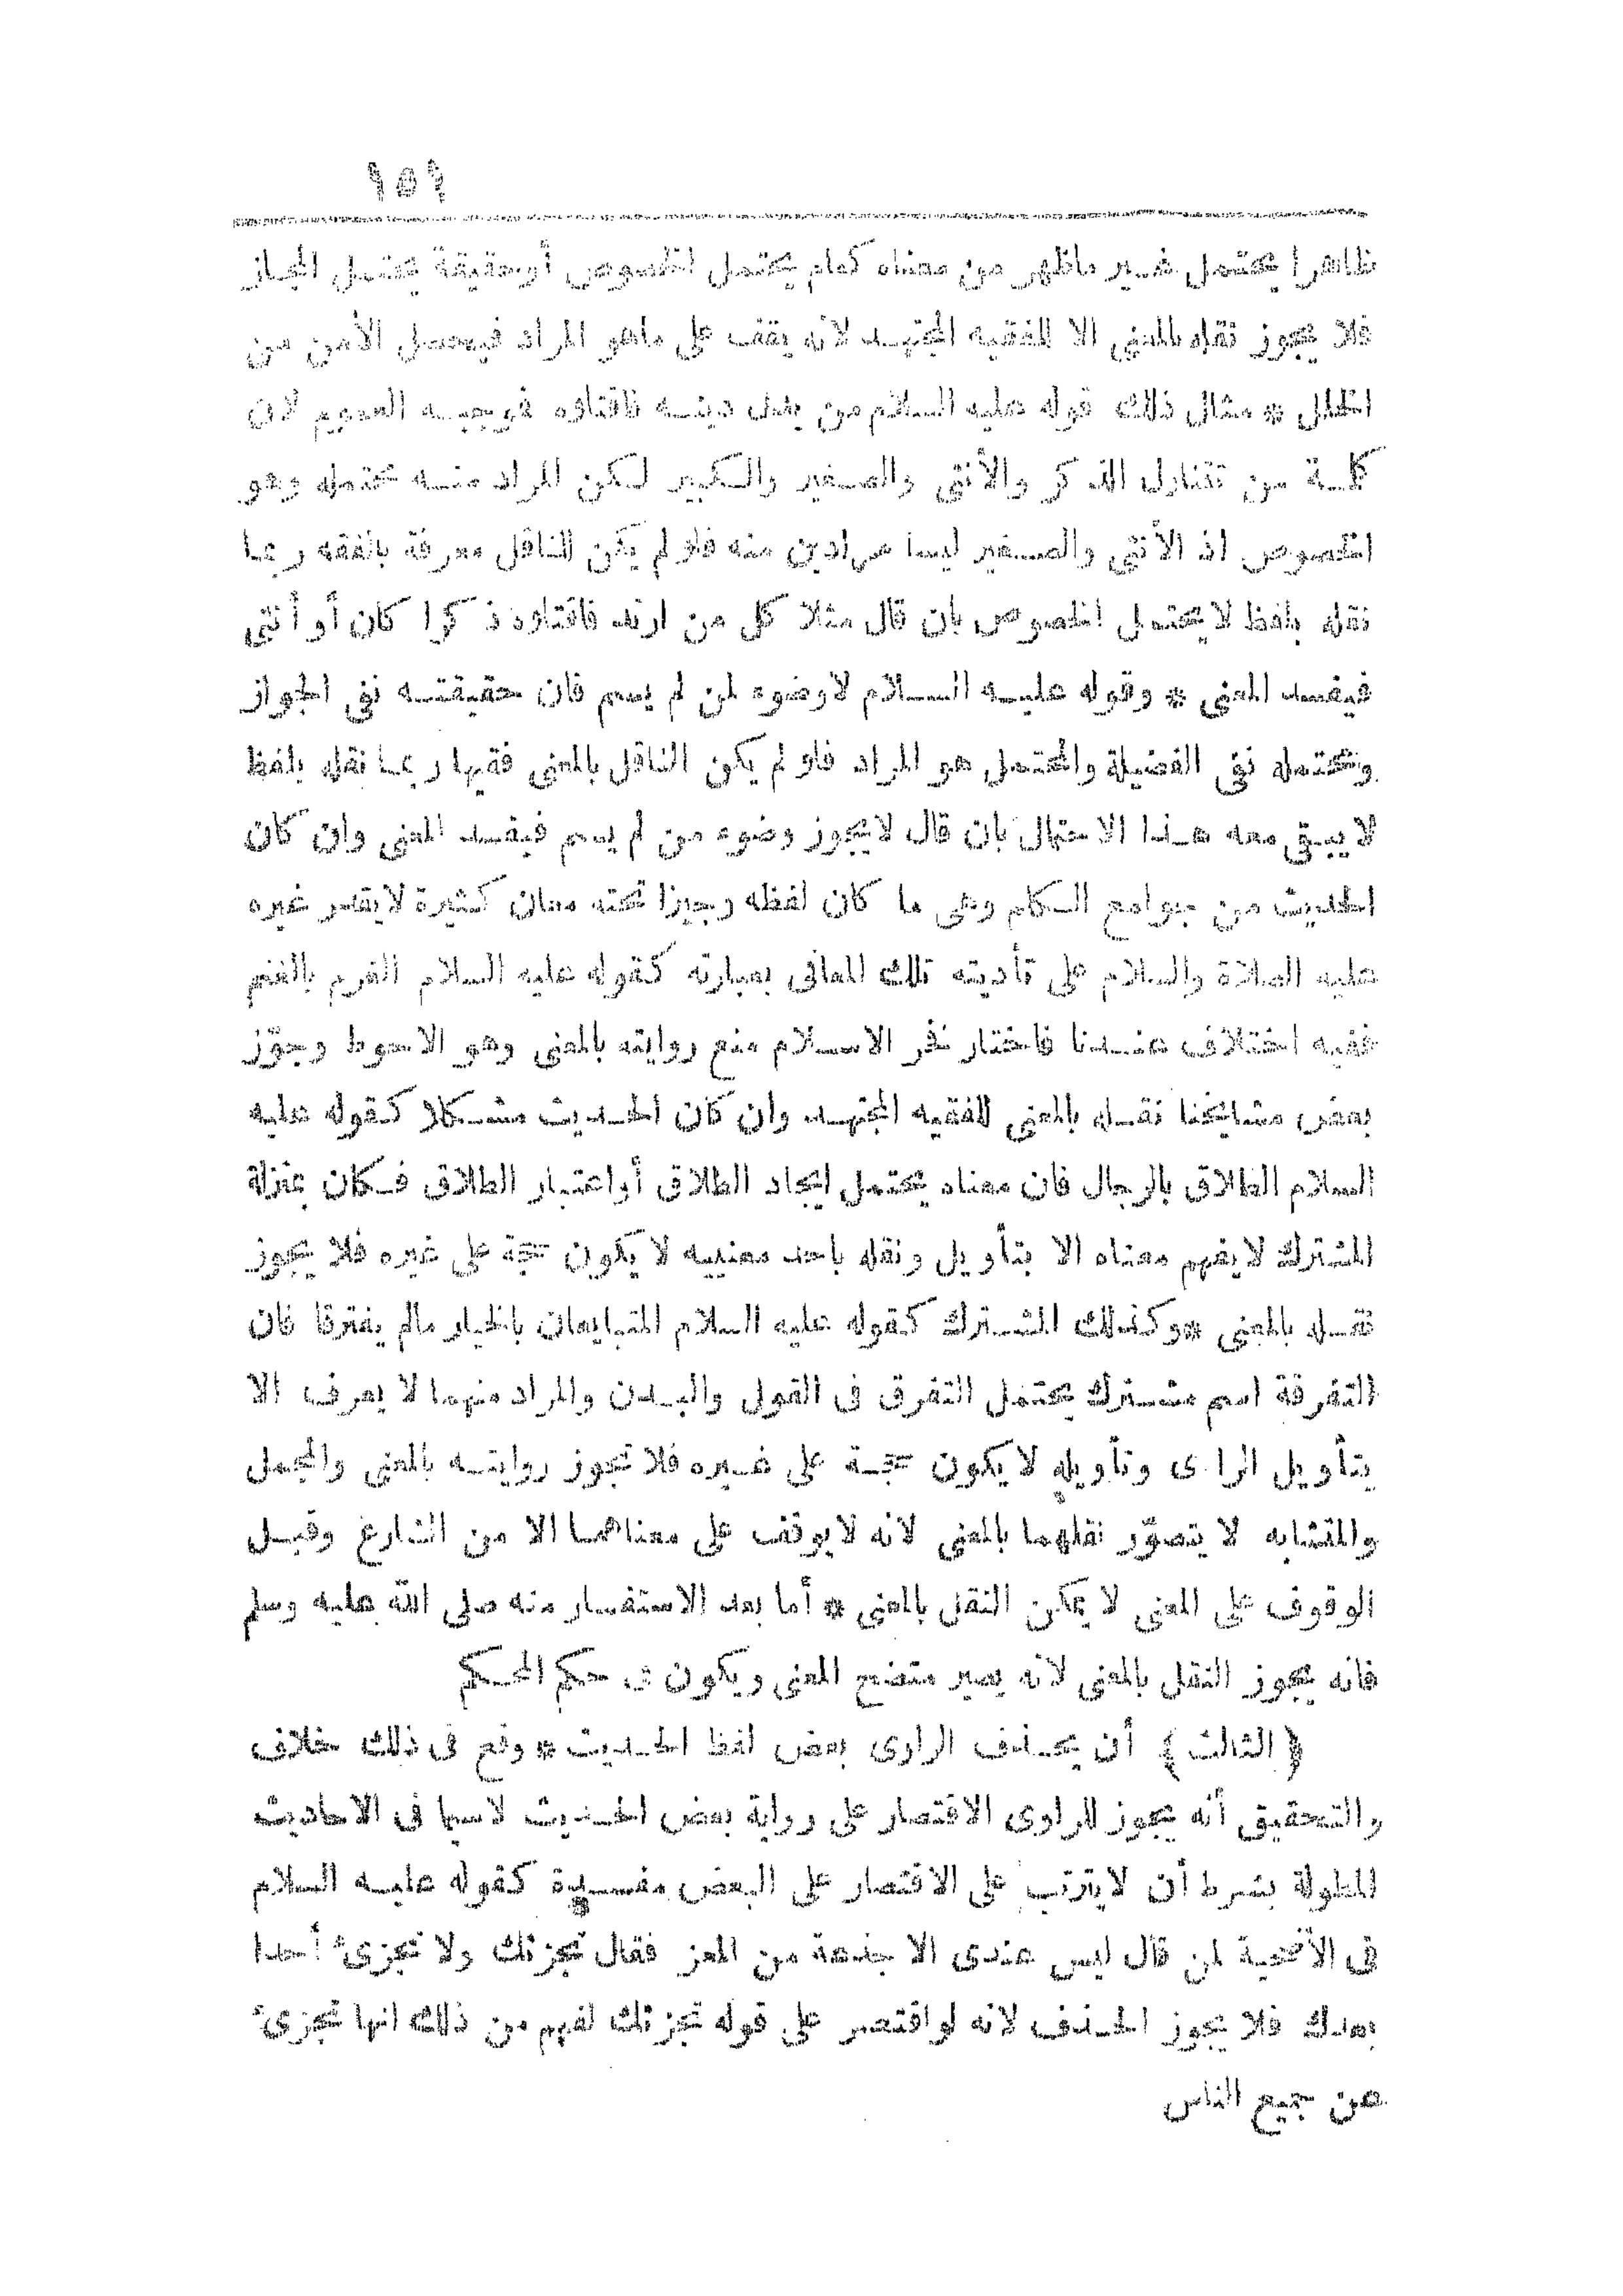 ١٥٩
ظاهرا يحتمل غير ماظهر من معناه كعام يحتمل الخصوص أوحقيقة يحتمل المجاز
فلا يجوز نقله بالمعنى الا للفقيه المجتهد لانه يقف على ماهو المراد فيحصل الأمن من
الخلل * مثال ذلك قوله عليه السلام من بدل دينه فاقتلوه فموجبه العموم لان
كلمة من تتناول الذكر والأنثى والصغير والكبير لكن المراد منه محتمله وهو
الخصوص اذ الأنثى والصغير ليسا مرادين منه فلو لم يكن للناقل معرفة بالفقه ربما
نقله بلفظ لايحتمل الخصوص بان قال مثلا كل من ارتد فاقتلوه ذكرا كان أو أنثى
فيفسد المعنى * وقوله عليه السلام لاوضوء لمن لم يسم فان حقيقته نفى الجواز
ومحتمله نفى الفضيلة والمحتمل هو المراد فلو لم يكن الناقل بالمعنى فقيها ربما نقله بلفظ
لا يبقى معه هذا الاحتمال بان قال لايجوز وضوء من لم يسم فيفسد المعنى وان كان
الحديث من جوامع الكلم وهى ما كان لفظه وجيزا تحته معان كثيرة لايقدر غيره
عليه الصلاة والسلام على تأديته تلك المعانى بعبارته كقوله عليه السلام الغرم بالغنم
ففيه اختلاف عندنا فاختار فخر الاسلام منع روايته بالمعنى وهو الاحوط وجوّز
بعض مشايخنا نقله بالمعنى للفقيه المجتهد وان كان الحديث مشكلا كقوله عليه
السلام الطلاق بالرجال فان معناه يحتمل ايجاد الطلاق أواعتبار الطلاق فكان بمنزلة
المشترك لايفهم معناه الا بتأويل ونقله باحد معنييه لا يكون حجة على غيره فلا يجوز
نقله بالمعنى *وكذلك المشترك كقوله عليه السلام المتبايعان بالخيار مالم يفترقا فان
التفرقة اسم مشترك يحتمل التفرق فى القول والبدن والمراد منهما لا يعرف الا
بتأويل الراى وتأويله لا يكون حجة على غيره فلا تجوز روايته بالمعنى والمجمل
والمتشابه لا يتصوّر نقلهما بالمعنى لانه لايوقف على معناهما الا من الشارع وقبل
الوقوف على المعنى لا يمكن النقل بالمعنى * أما بعد الاستفسار منه صلى الله عليه وسلم
فانه يجوز النقل بالمعنى لانه يصير متضح المعنى ويكون فى حكم المحكم
﴿الثالث﴾ أن يحذف الراوى بعض لفظ الحديث * وقع فى ذلك خلاف
والتحقيق أنه يجوز للراوى الاقتصار على رواية بعض الحديث لاسيما فى الاحاديث
المطولة بشرط أن لايترتب على الاقتصار على البعض مفسدة كقوله عليه السلام
فى الأضحية لمن قال ليس عندى الا جذعة من المعز فقال تجزئك ولا تجزئ أحدا
بعدك فلا يجوز الحذف لانه لو اقتصر على قوله تجزئك لفهم من ذلك انها تجزئ
عن جميع الناس